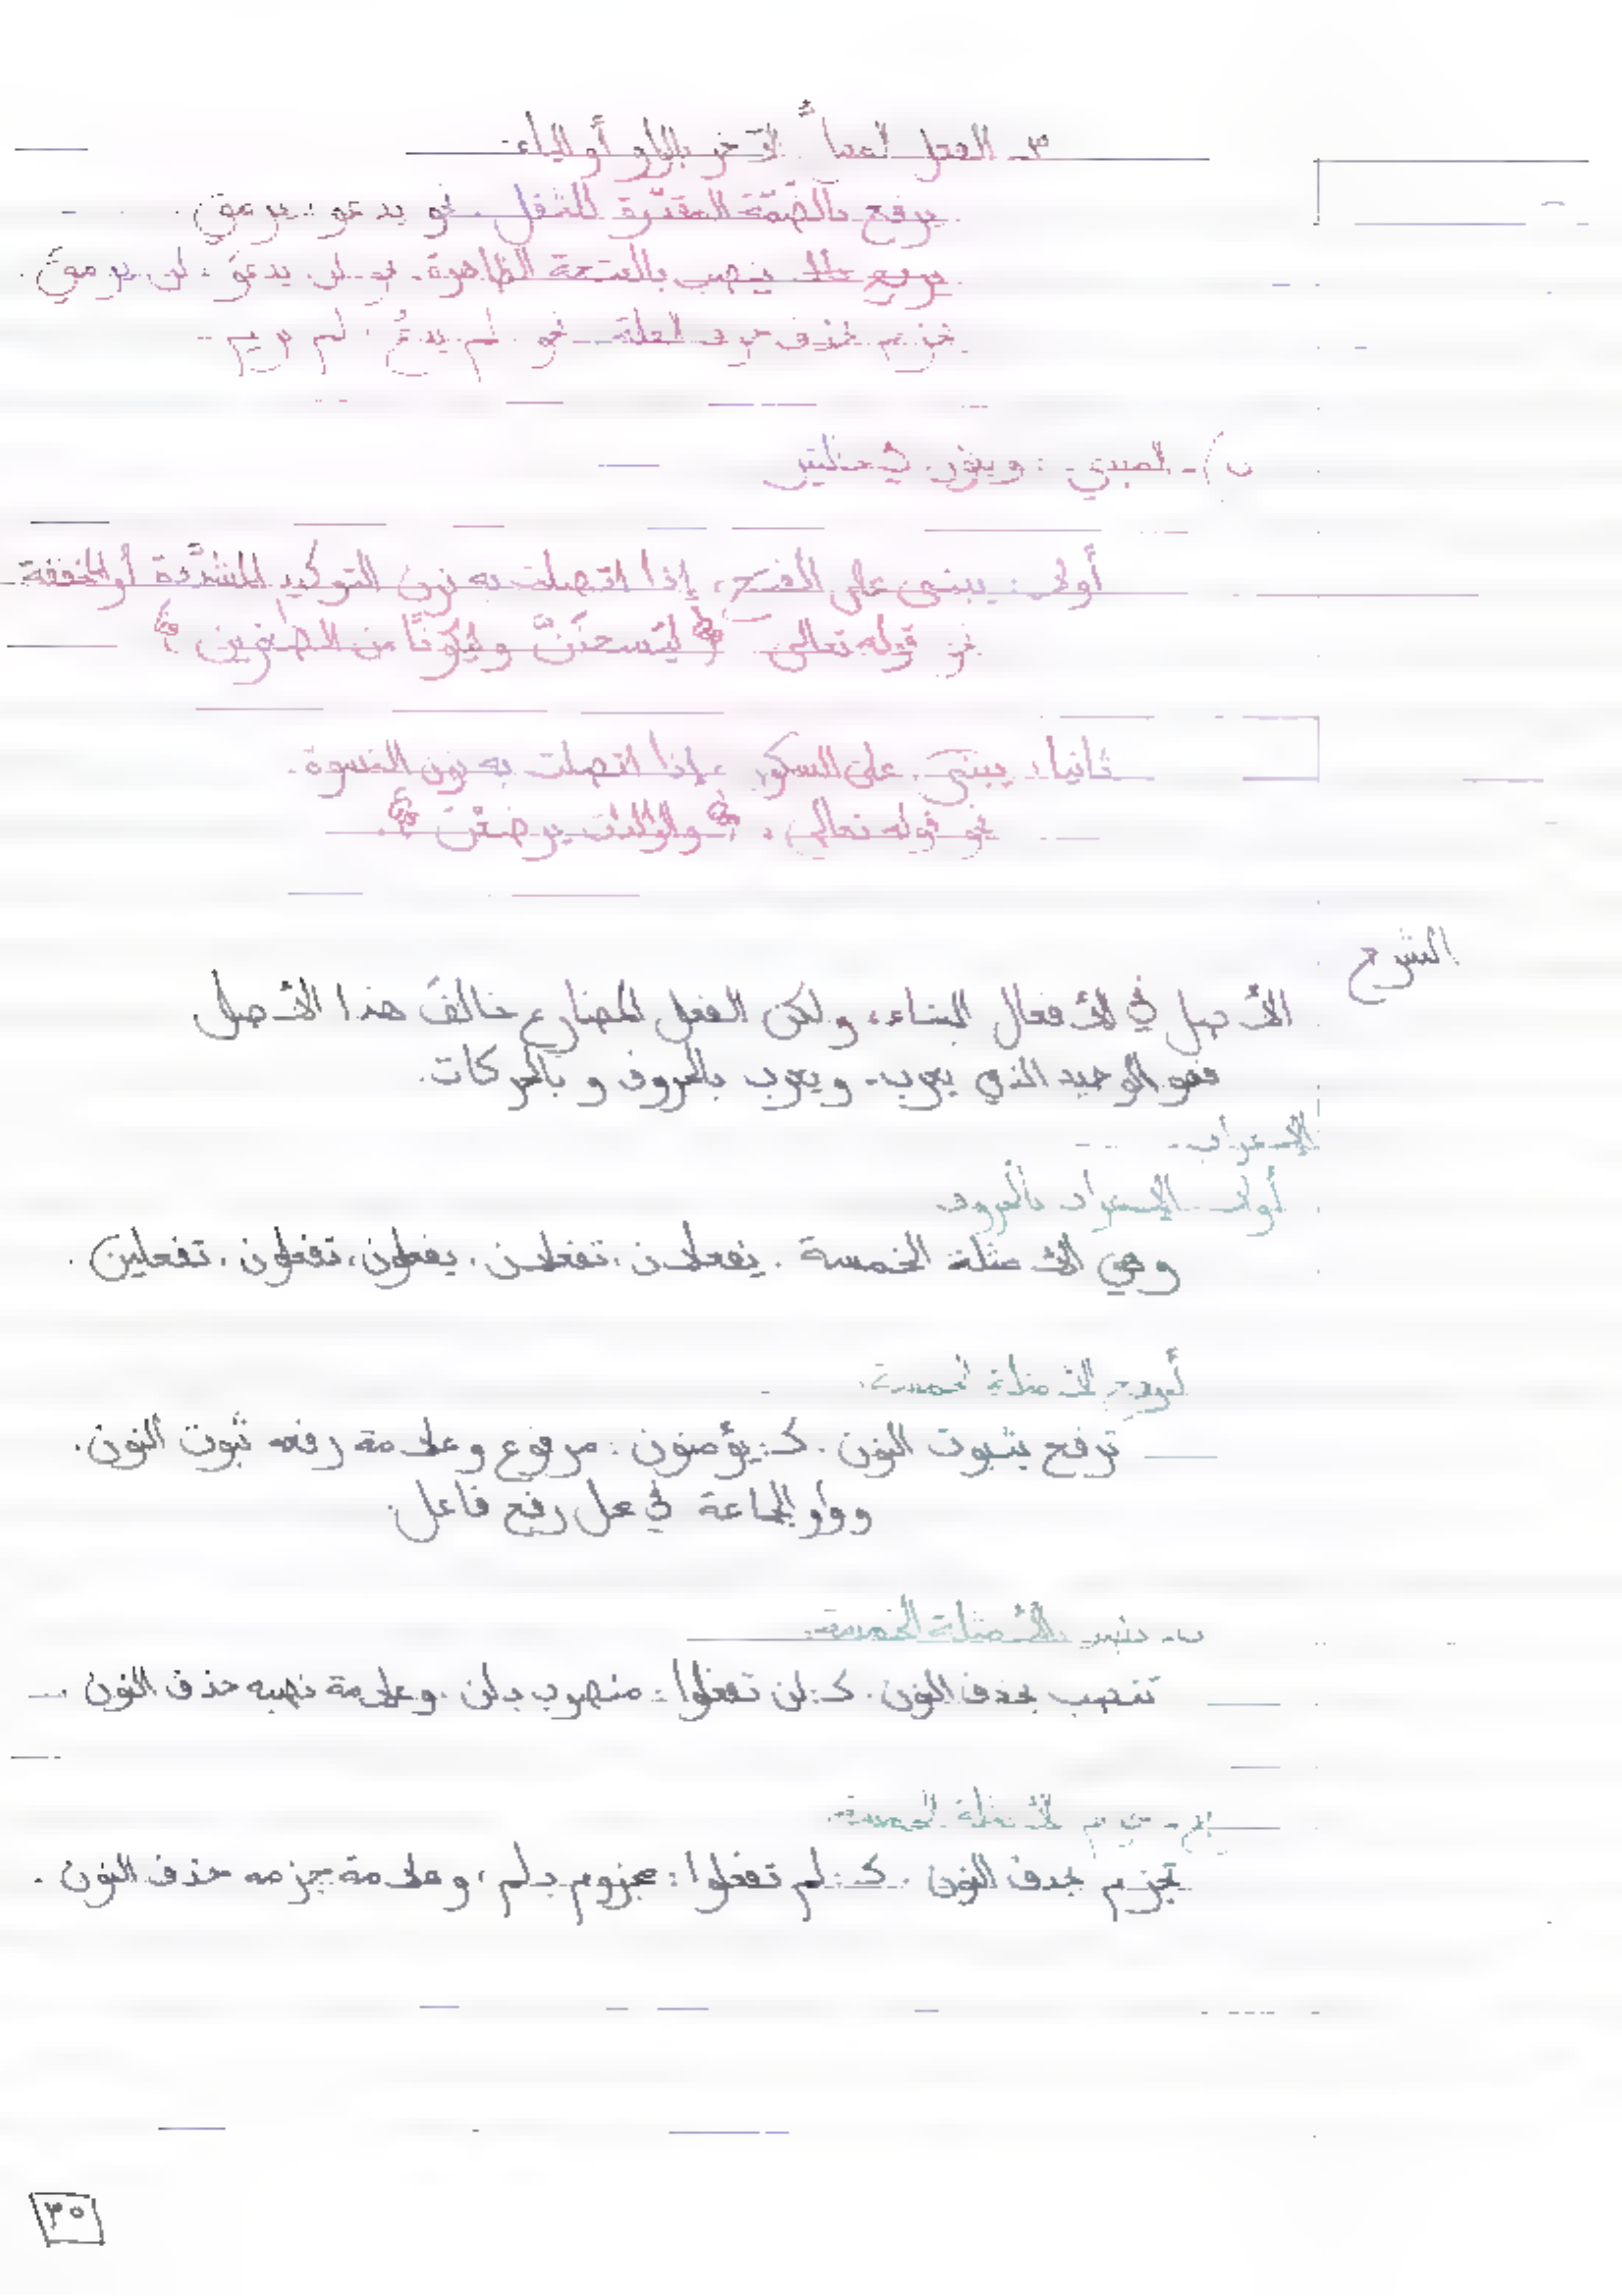 ٣- الفعل المعتل الآخر بالواو أو الياء:
يرفع بالضمّة المقدّرة للثقل. نحو يدعو، يرمي.
ينصب بالفتحة الظاهرة. نحو لن يدعوَ، لن يرميَ.
يجزم بحذف حرف العلة. نحو لم يدعُ، لم يرم
ب)- المبني: ويكون في حالتين
أولا: يبنى على الفتح، إذا اتصلت به نون التوكيد المشدّدة أو المخففة
نحو قوله تعالى ﴿ ليُسجننّ وليكونًا من الصاغرين ﴾
ثانيا: يبنى على السكون، إذا اتصلت به نون النسوة.
نحو قوله تعالى: ﴿ والوالدات يرضعْن ﴾.
الشرح
الأصل في الأفعال البناء، ولكن الفعل المضارع خالف هذا الأصل
فهو الوحيد الذي يعرب. ويعرب بالحروف و بالحركات.
الإعراب.
أولا الإعراب بالحروف
وهي الأمثلة الخمسة. يفعلان، تفعلان، يفعلون، تفعلون، تفعلين.
الأمثلة الخمسة.
ترفع بثبوت النون. كـ: يؤمنون: مرفوع وعلامة رفعه ثبوت النون.
وواو الجماعة في محل رفع فاعل.
ب- نصب الأمثلة الخمسة.
تنصب بحذف النون. كـ: لن تفعلوا: منصوب بلن. وعلامة نصبه حذف النون.
ج- جزم الأمثلة الخمسة.
تجزم بحذف النون. كـ: لم تفعلوا: مجزوم بلم، وعلامة جزمه حذف النون.
٣٥